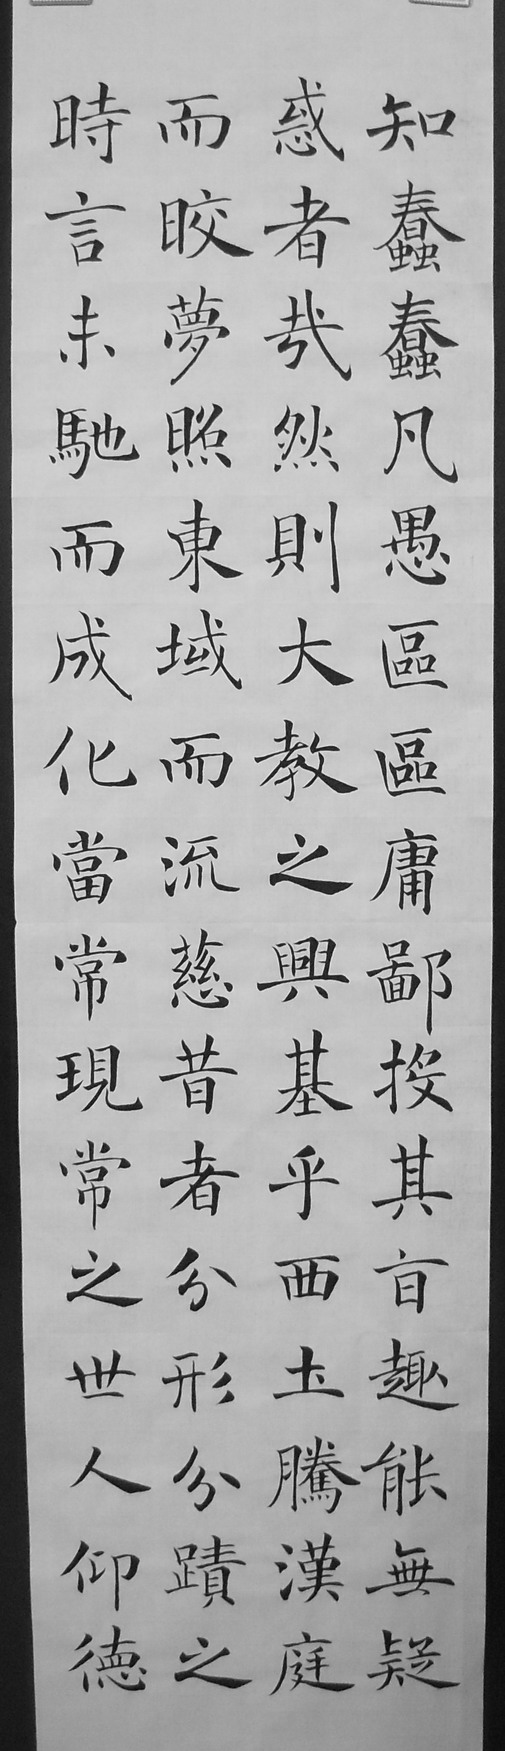 知蠢蠢凡愚區區庸鄙投其旨趣能無疑
惑者哉然則大教之興基乎西土騰漢庭
而皎夢照東域而流慈昔者分形分蹟之
時言未馳而成化當常現常之世人仰德